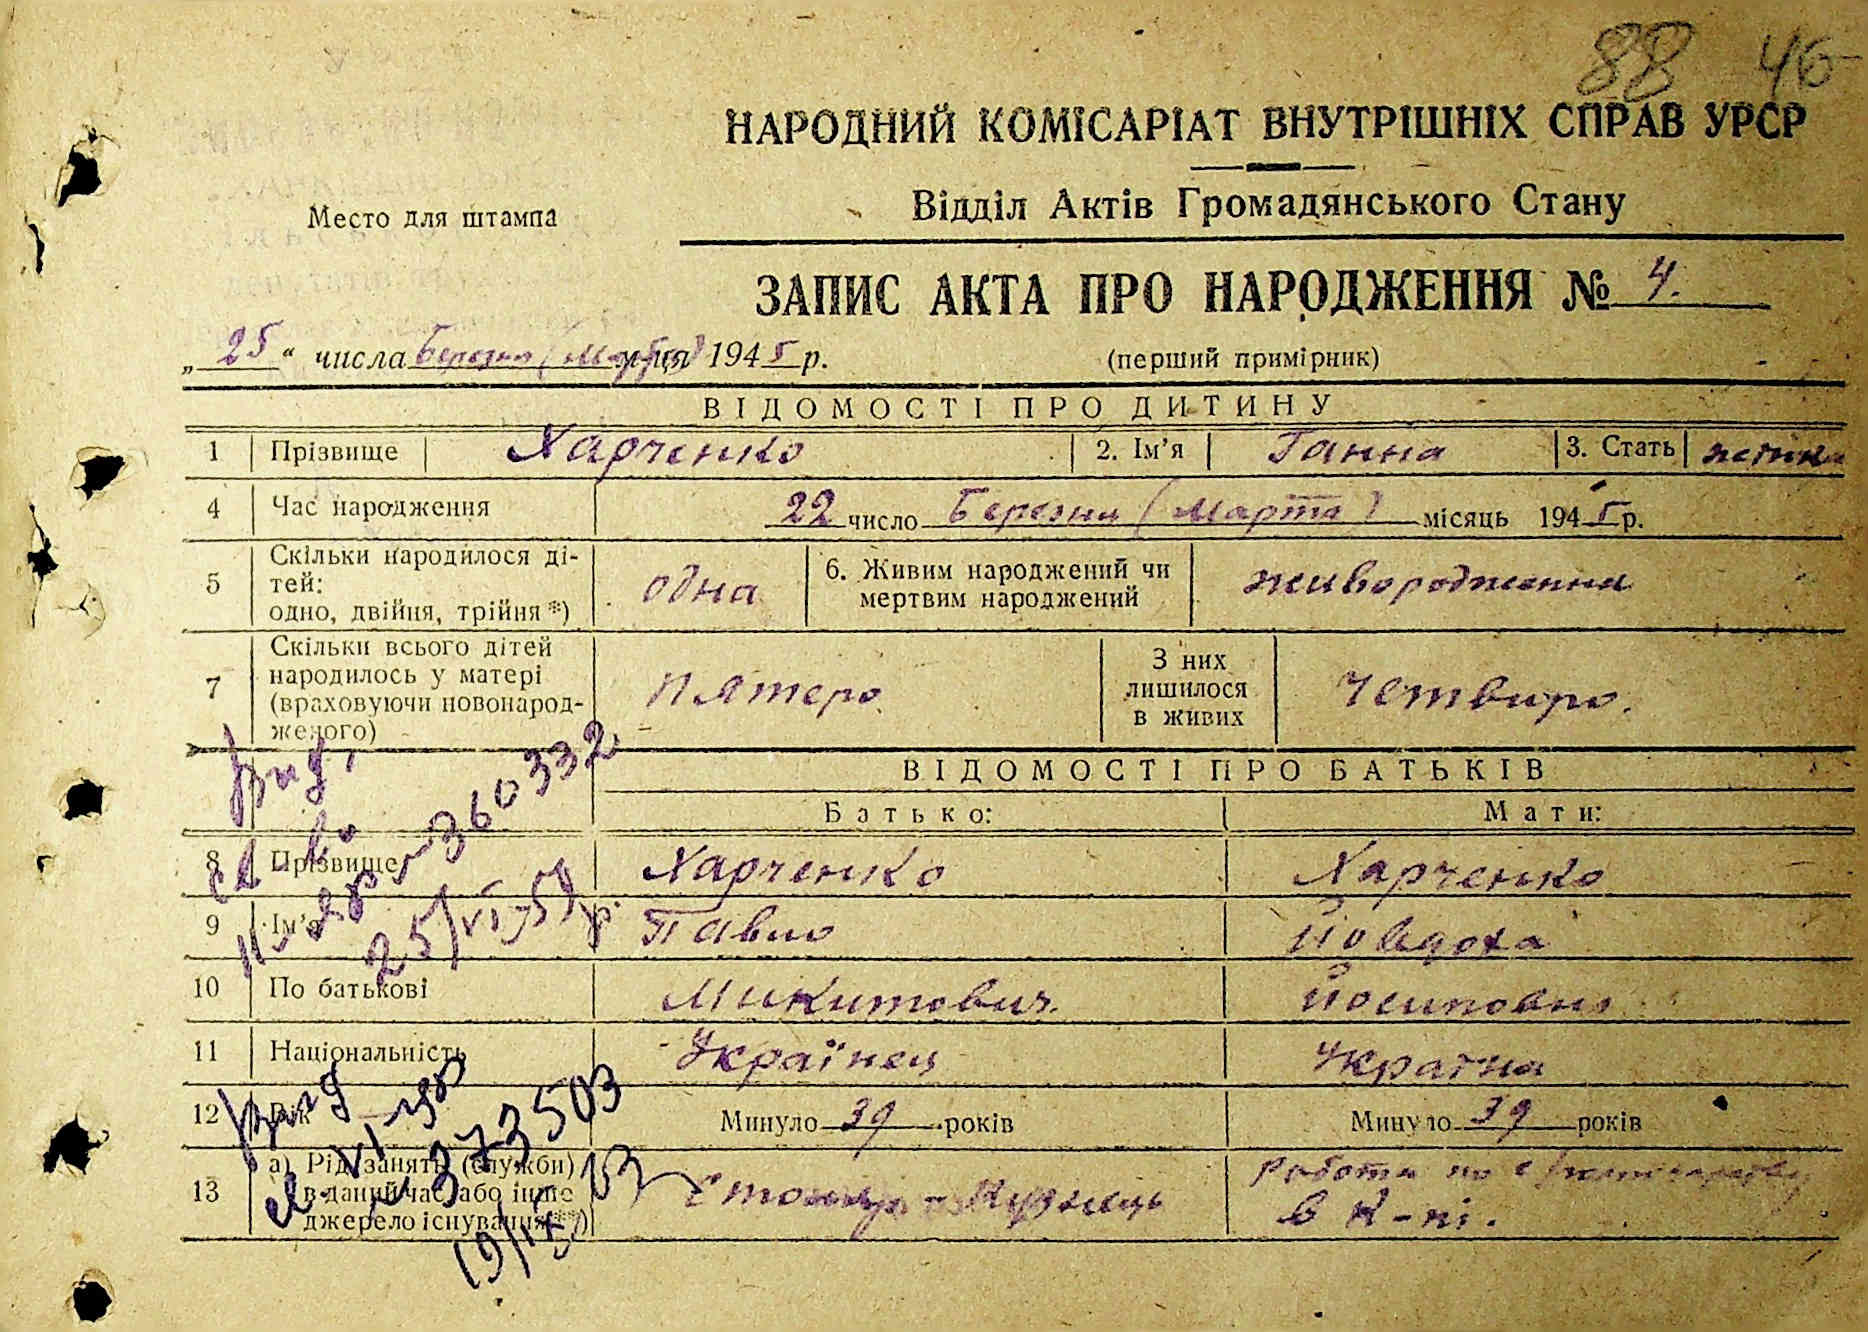 88 46
НАРОДНИЙ КОМІСАРІАТ ВНУТРІШНІХ СПРАВ УРСР
Место для штампа
Відділ Актів Громадянського Стану
ЗАПИС АКТА ПРО НАРОДЖЕННЯ № 4.
„ 25 “ числа Березня (Марта) м-ця 1945 р.
(перший примірник)
ВІДОМОСТІ ПРО ДИТИНУ
1 Прізвище Харченко 2. Ім’я Ганна 3. Стать
4 Час народження 22 число Березня (Марта) місяць 1945 р.
5 Скільки народилося ді-
тей:
одно, двійня, трійня *)
одна
6. Живим народжений чи
мертвим народжений
живородженна
7 Скільки всього дітей
народилось у матері
(враховуючи новонарод-
женого)
пятеро
З них
лишилося
в живих
четвиро.
ВІДОМОСТІ ПРО БАТЬКІВ
Батько: Мати:
8 Прізвище Харченко Харченко
9 Ім’я Павло Йовдоха
10 По батькові Микитович Йосиповна
11 Національність Українец Україна
12 Вік Минуло 39 років Минуло 39 років
13 а) Рід занять (служби)
в даний час або інше
джерело існування **)
Столяр - Кузнець
Робота по
в К-пі.
360332
25/VI-59 р.
373503